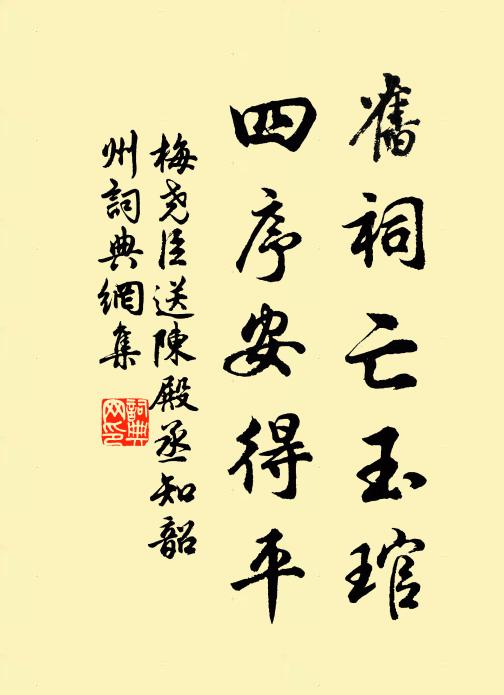 舊祠亡玉琯
四序安得平
梅堯臣送陳殿丞知韶
州詞典網集
詞典
网印